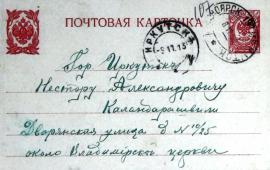 ПОЧТОВАЯ КАРТОЧКА
ИРКУТСКЪ
Гор Иркутскъ
Нестору Александровичу
Каландаришвили
Дворянская улица д № 12/25
около Владимірск церкви